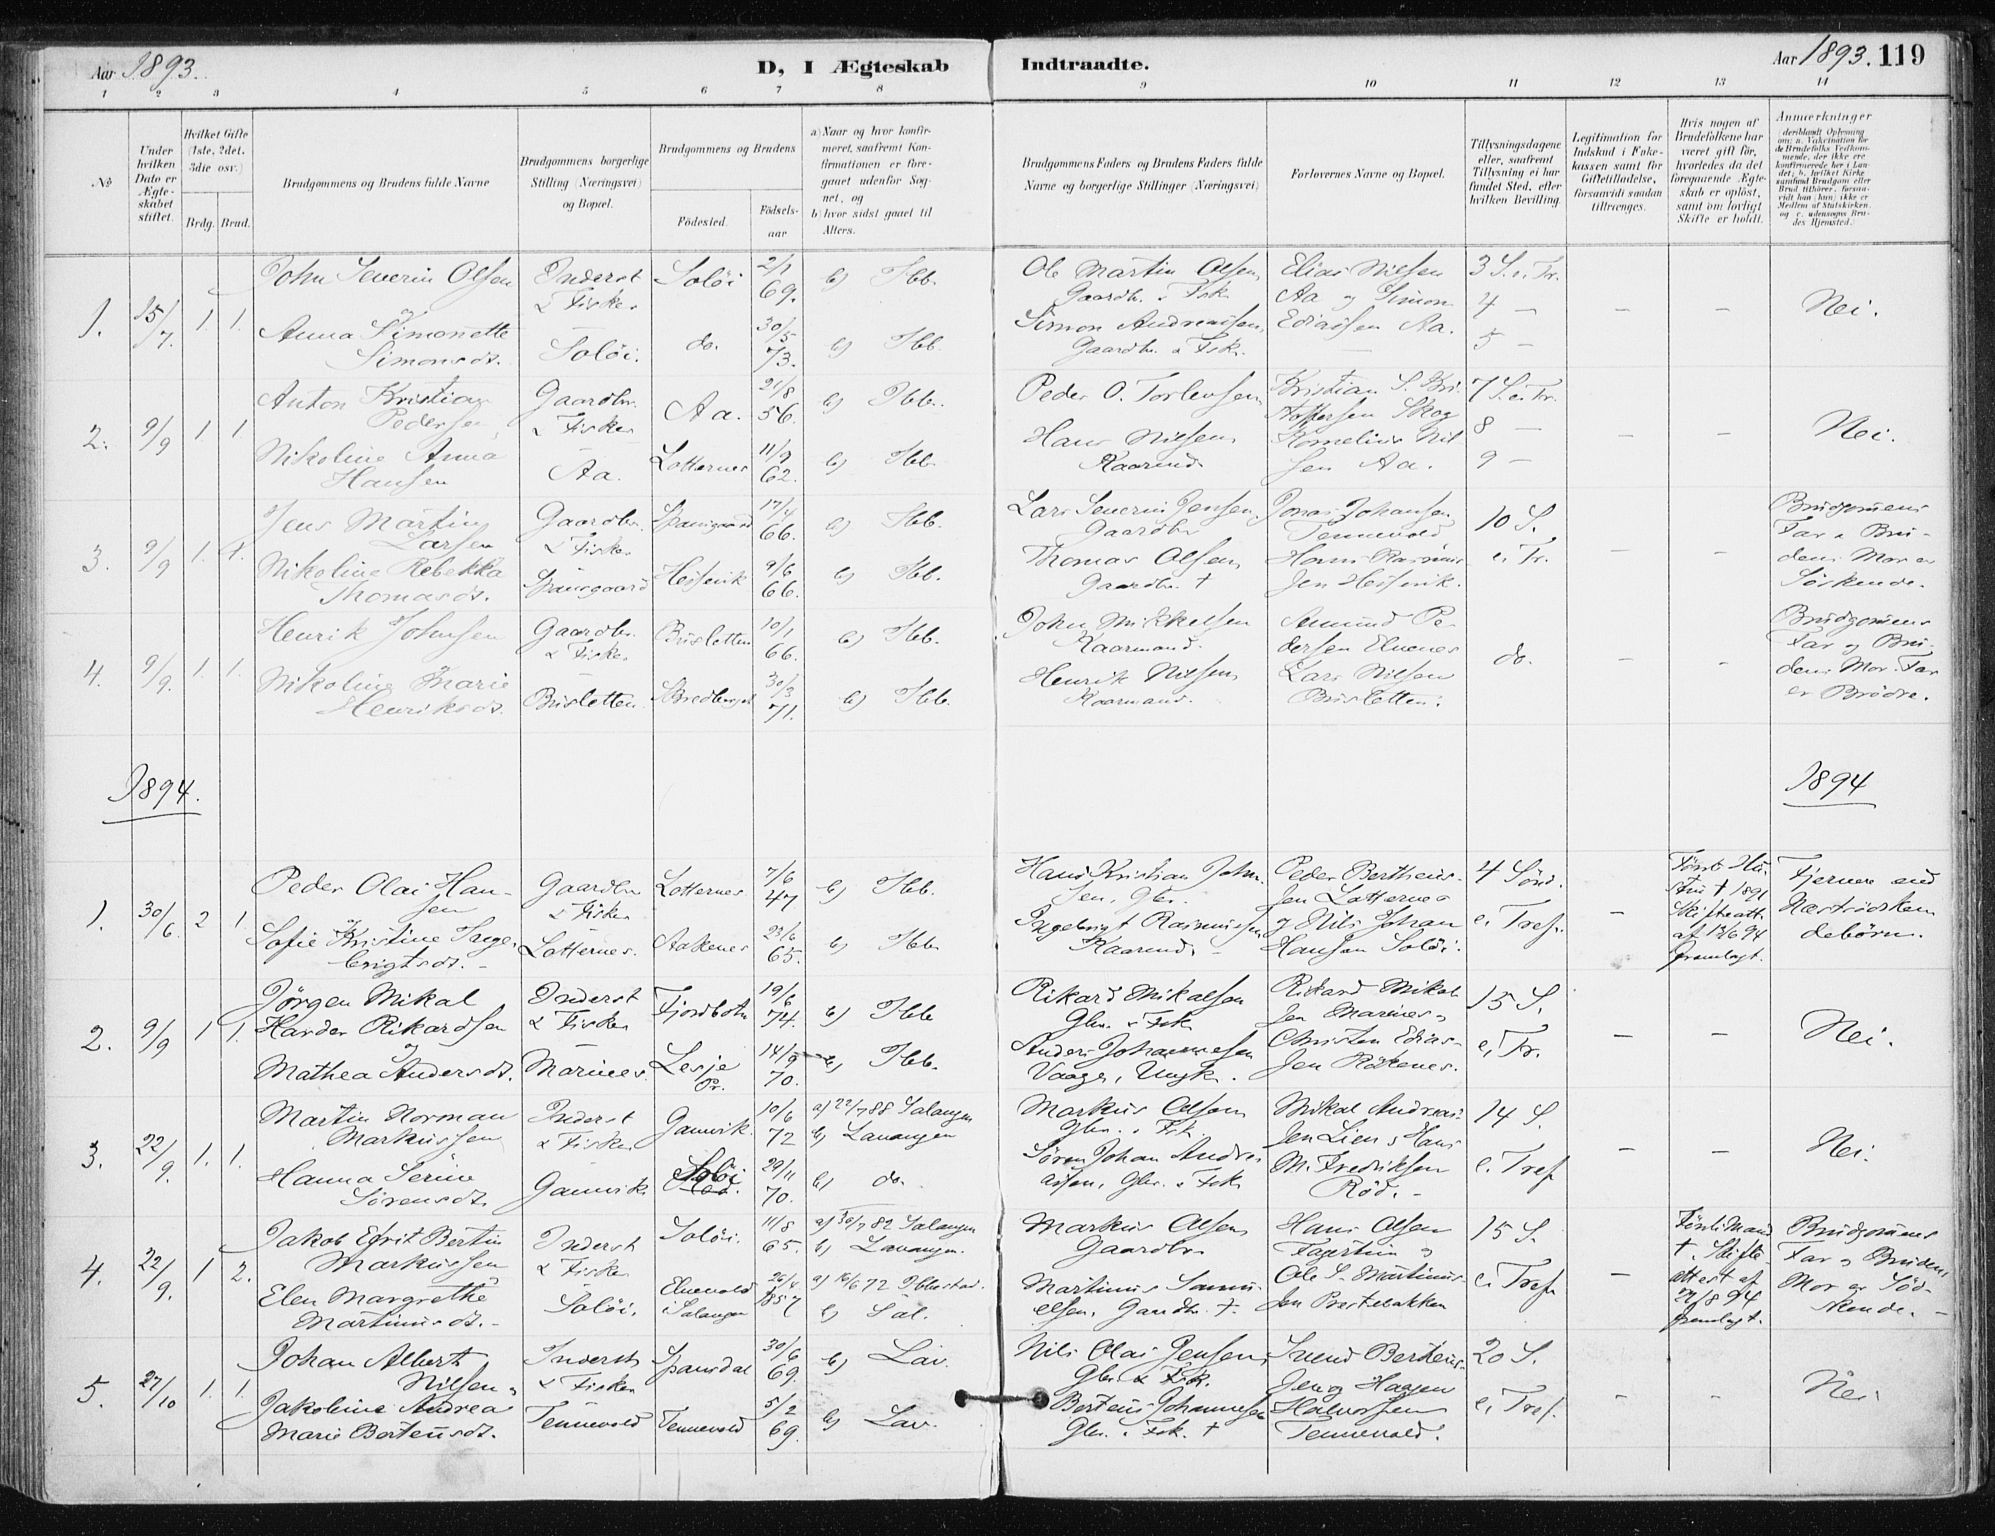 Aar 1893.
D, I Ægteskab
Indtraadte.
Aar 1893. 119
1 2 3 4 5 6 7 8 9 10 11 12 13 14
No
Under hvilken Dato er Ægteskabet stiftet.
Hvilket Gifte (1ste, 2det, 3die osv.)
Brdg. Brud.
Brudgommens og Brudens fulde Navne
Brudgommens borgerlige Stilling (Næringsvei) og Bopæl.
Brudgommens og Brudens
Födested.
Födselsaar
a) Naar og hvor konfirmeret, saafremt Konfirmationen er foregaaet udenfor Sognet, og
b) hvor sidst gaaet til Alters.
Brudgommens Faders og Brudens Faders fulde Navne og borgerlige Stillinger (Næringsvei)
Forlovernes Navne og Bopæl.
Tillysningsdagene eller, saafremt Tillysning ei har fundet Sted, efter hvilken Bevilling.
Legitimation for Indskud i Enkekassen samt for Giftetilladelse, forsaavidt saadan tiltrænges.
Hvis nogen af Brudefolkene har været gift för, hvorledes da det foregaaende Ægteskab er oplöst, samt om lovligt Skifte er holdt.
Anmærkninger
1. 15/7. 1. 1.
John Severin Olsen
og
Anna Simonette
Simonsdt.
Inderst
& Fisker
Solöi.
Solöi
do.
2/1 69.
30/5 73.
b) Ibb.
b) Ibb.
Ole Martin Olsen,
Gaardbr. & Fisk.
Simon Andreassen,
Gaardbr. & Fsk.
Elias Nilsen
Aa og Simon
Ediassen Aa.
3 S. e. Tr.
4 —
5 —
– –
Nei.
2. 9/9 1 1
Anton Kristian
Pedersen
Nikoline Anna
Hansen
Gaardbr.
& Fisker
Aa.
Aa.
Lotternes
21/8 56.
11/9 62.
b) Ibb.
b) Ibb.
Peder O. Torlevsen
Hans Nielsen
Kaarmd.
Kristian S. Kri-
stoffersen Skog
Kornelius Nil-
sen Aa.
7 S. e. Tr.
8 —
9 —
– –
Nei.
3. 9/9 1. 1.
Jens Martin
Larsen
Nikoline Rebekka
Thomasdt.
Gaardbr.
& Fisker
Spansgaard
Spansgaard
17/4 66.
9/6 66.
b) Ibb.
b) Ibb.
Lars Severin Jensen,
Gaardbr
Thomas Olsen
Gaardbr. †
Jonas Johansen
Tennevold
Hans Rasmus-
sen
10 S.
e. Tr.
– –
Brudgommens
Far & Bru-
dens Mor er
Söskende.
4. 9/9. 1. 1.
Henrik Johnsen
Nikoline Marie
Henriksdt.
Gaardbr.
& Fisker
Brusletten
Brusletten
10/1 66.
30/3 71.
b) Ibb.
b) Ibb.
John Mikkelsen
Kaarmand.
Henrik Nilsen,
Kaarmand.
Amund Pe-
dersen Elvenes
Lars Nilsen
Brusletten.
do.
– –
Brudgommens
Far og Bru-
dens Mor-Far
er Brödre.
1894.
1894
1. 30/6. 2 1.
Peder Olai Han-
sen
og
Sofie Kristine Inge-
brigtsdt.
Gaardbr
& Fisker
Lotternes.
Lotternes
Aakenes
7/6 47
23/6 65.
b) Ibb.
b) Ibb.
Hans Kristian John-
sen, Gbr.
Ingebrigt Rasmussen
Kaarmd.
Peder Bertheus-
sen Lotternes
og Nils Johan
Hansen Solöi.
4 Sönd.
e. Tref.
–
Förste Hu-
stru † 1891
Skifteatt.
af 13/6 94
fremlagt.
Fjernere end
Næstsösken-
debörn.
2. 9/9 1 1.
Jörgen Mikal
Harder Rikardsen
og
Mathea Andersdt.
Inderst
& Fisker
Marines
Fjordbotn
Lesje
Pr.
19/6 74.
14/9 70.
b) Ibb
b) Ibb.
Rikard Mikalsen
Gbr. & Fsk
Anders Johannesen
Vaage, Ungk.
Rikard Mikal-
sen Marines,
Christen Edias-
sen Rökenes.
15 S.
e. Tr.
– –
Nei.
3. 22/9. 1. 1.
Martin Norman
Markussen
Hanna Serine
Sörensdt.
Inderst
& Fisker
Gamvik
Gamvik.
Solöi
10/6 72
29/11 70.
a) 22/7 88 Salangen
b) Lavangen
b) do.
Markus Olsen,
Gbr. & Fsk.
Sören Johan Andre-
assen, Gbr. & Fsk.
Mikal Andreas-
sen Lien & Hans
M. Fredriksen
Röd.
14 S.
e. Tref.
– –
Nei.
4. 22/9. 1 2.
Jakob Efrit Bertin
Markussen
Elen Margrethe
Martinusdt.
Inderst
& Fisker
Solöi.
Solöi.
Elvevold
i Salangen
11/8 65.
26/4 1857
a) 30/7 82 Salangen
b) Lavangen.
a) 16/6 72 Ibbestad.
b) Sal.
Markus Olsen
Gaardbr
Martinus Samu-
elsen, Gaardbr. †.
Hans Olsen
Fagertun og
Ole S. Martinus-
sen Prestebakken
15 S.
e. Tref.
–
Förste Mand
†. Skifte-
attest af
29/8 94
fremlagt.
Brudgommens
Far og Brudens
Mor er Sös-
kende.
5. 27/10 1. 1.
Johan Albert
Nilsen
Jakobine Andrea
Marie Berteusdt.
Inderst
& Fisker
Tennevold
Spansdal
Tennevold
30/6 69.
5/2 69.
b) Lav.
b) Lav.
Nils Olai Jensen,
Gbr. & Fsk.
Berteus Johannesen
Gbr. & Fsk. †
Svend Berteus-
sen og Hagen
Halvorsen
Tennevold.
20 S.
e. Tref.
– –
Nei